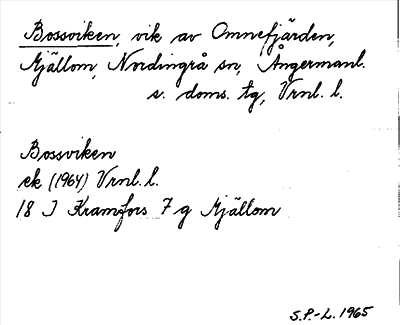 Bossviken, vik av Omnefjärden,
Mjällom, Nordingrå sn, Ångermanl.
s. doms. tg, Vrnl. l.
Bossviken
ek (1964) Vrnl. l.
18 J Kramfors 7 g Mjällom
S.P.-L. 1965